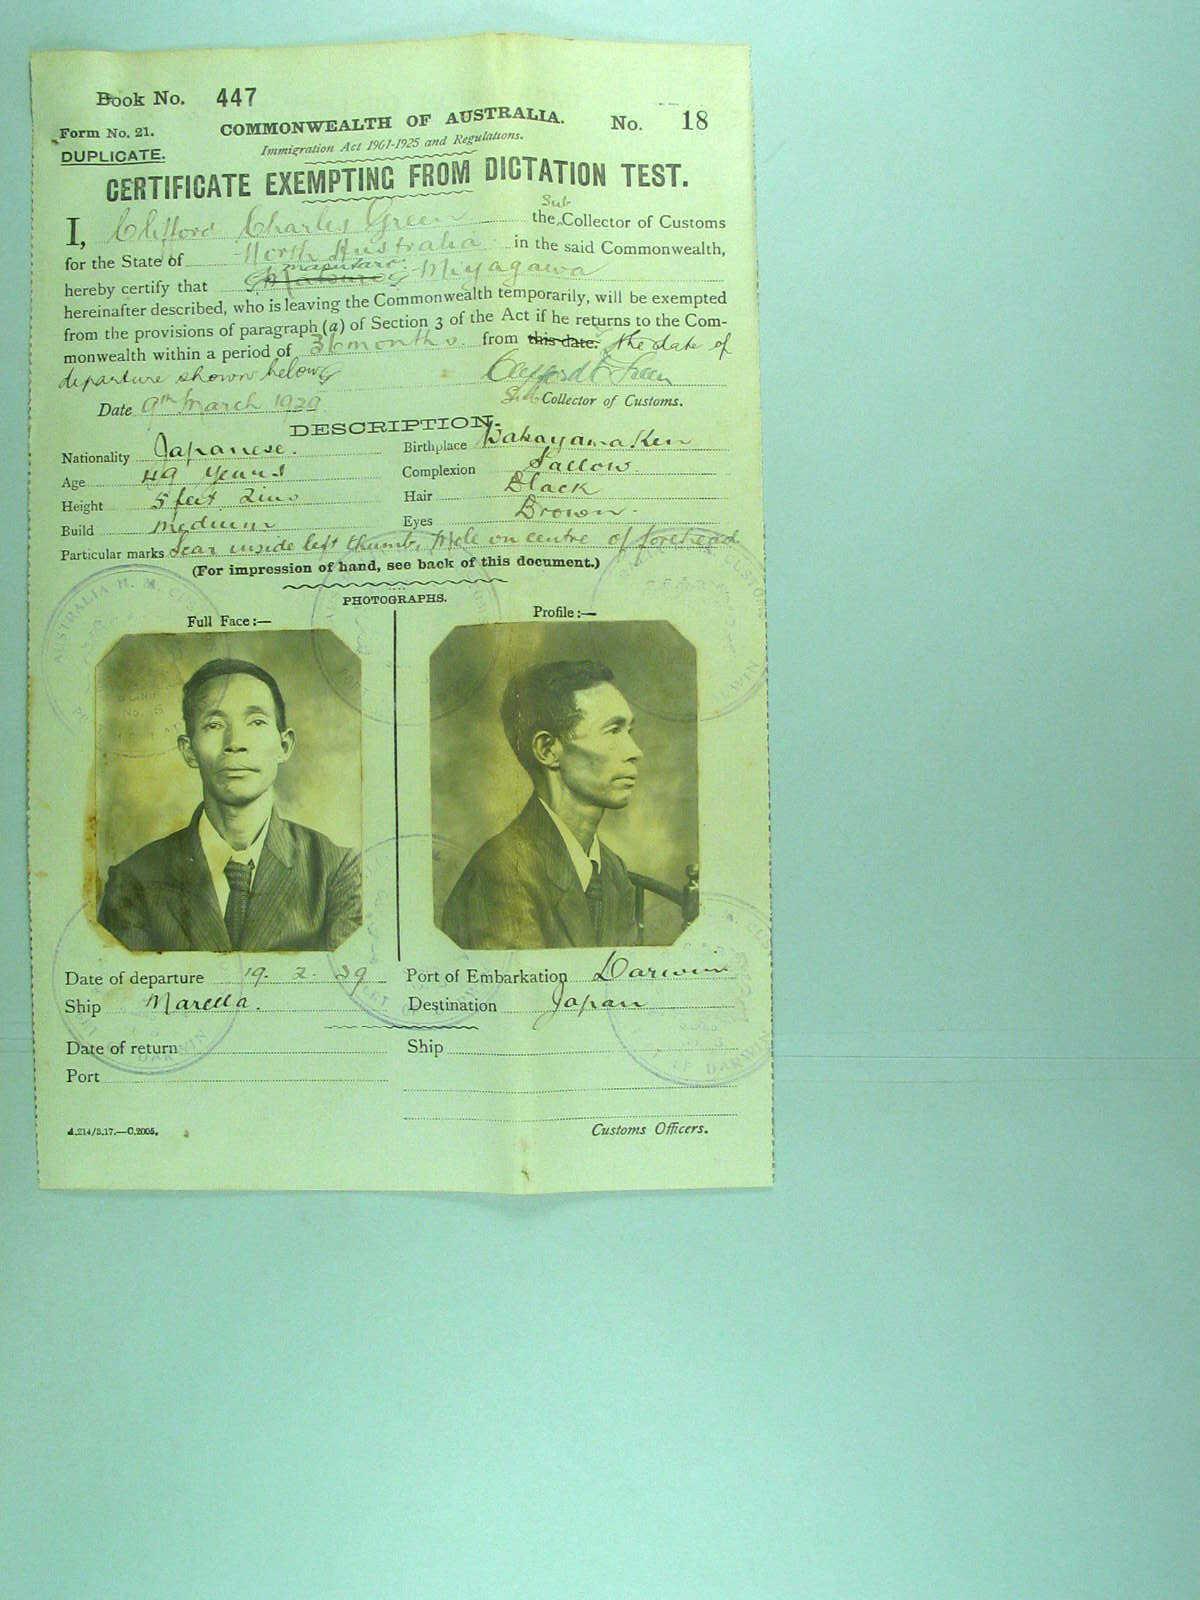 Book No. 447
Form No. 21.
COMMONWEALTH OF AUSTRALIA.
No. 18
DUPLICATE.
Immigration Act 1901-1925 and Regulations.
CERTIFICATE EXEMPTING FROM DICTATION TEST.
I, Clifford Charles Green the Sub Collector of Customs
for the State of North Australia in the said Commonwealth,
hereby certify that Miyagawa
hereinafter described, who is leaving the Commonwealth temporarily, will be exempted
from the provisions of paragraph (a) of Section 3 of the Act if he returns to the Com-
monwealth within a period of 36 months from this date. the date of
departure shown below
Sub Collector of Customs.
Date 9th March 1929
DESCRIPTION.
Nationality Japanese.
Birthplace Wakayama Ken
Age 49 years
Complexion Sallow
Height 5 feet 2 ins
Hair Black
Build medium
Eyes Brown.
Particular marks Scar inside left thumb, Mole on centre of forehead
(For impression of hand, see back of this document.)
PHOTOGRAPHS.
Full Face:—
Profile:—
Date of departure 19. 2. 29
Port of Embarkation Darwin
Ship Marella.
Destination Japan
Date of return
Ship
Port
A.214/3.17.—C.2005.
Customs Officers.